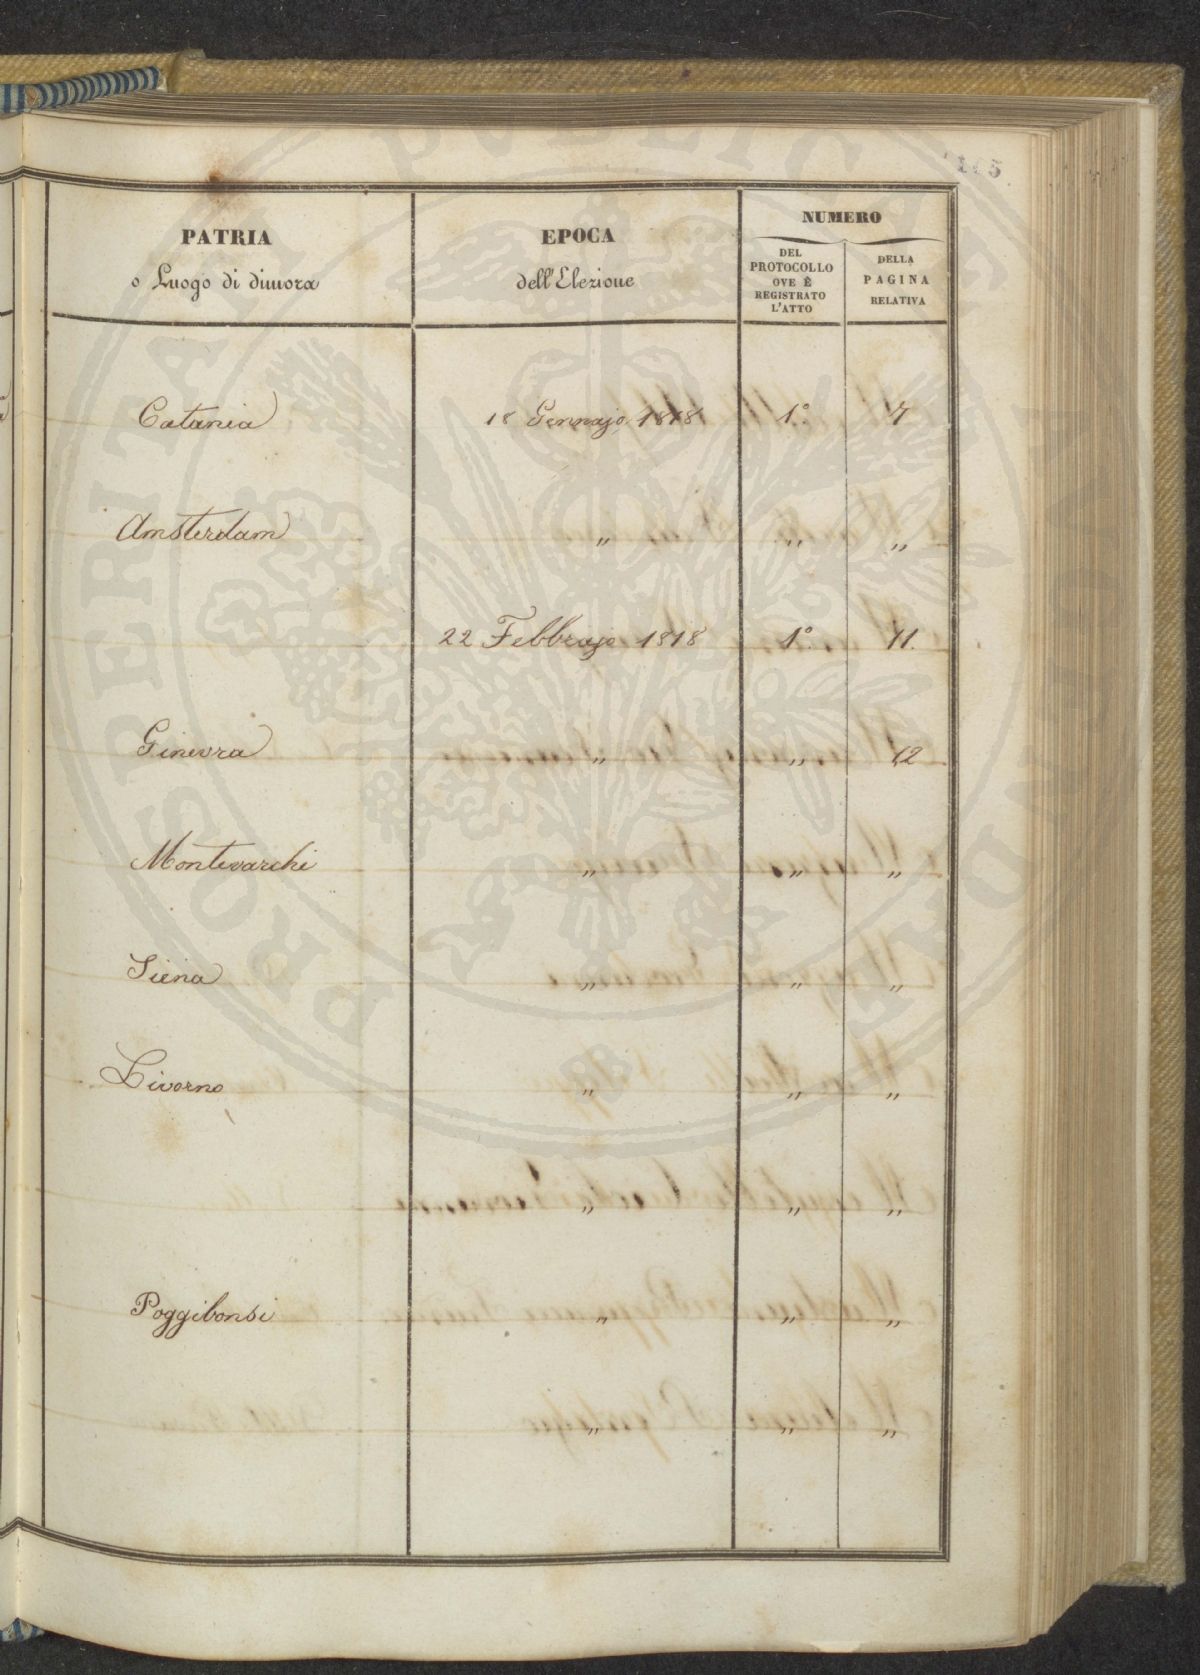 115
PATRIA
o Luogo di dimora
EPOCA
dell'Elezione
NUMERO
DEL
PROTOCOLLO
OVE È
REGISTRATO
L'ATTO
DELLA
PAGINA
RELATIVA
Catania 18 Gennajo 1818 1.° 7
Amsterdam " " "
22 Febbrajo 1818 1.° 11.
Ginevra " " 12
Montevarchi " " "
Siena " " "
Livorno " " "
" " "
Poggibonsi " " "
" " "
PROSPERITATI PUBLICAE